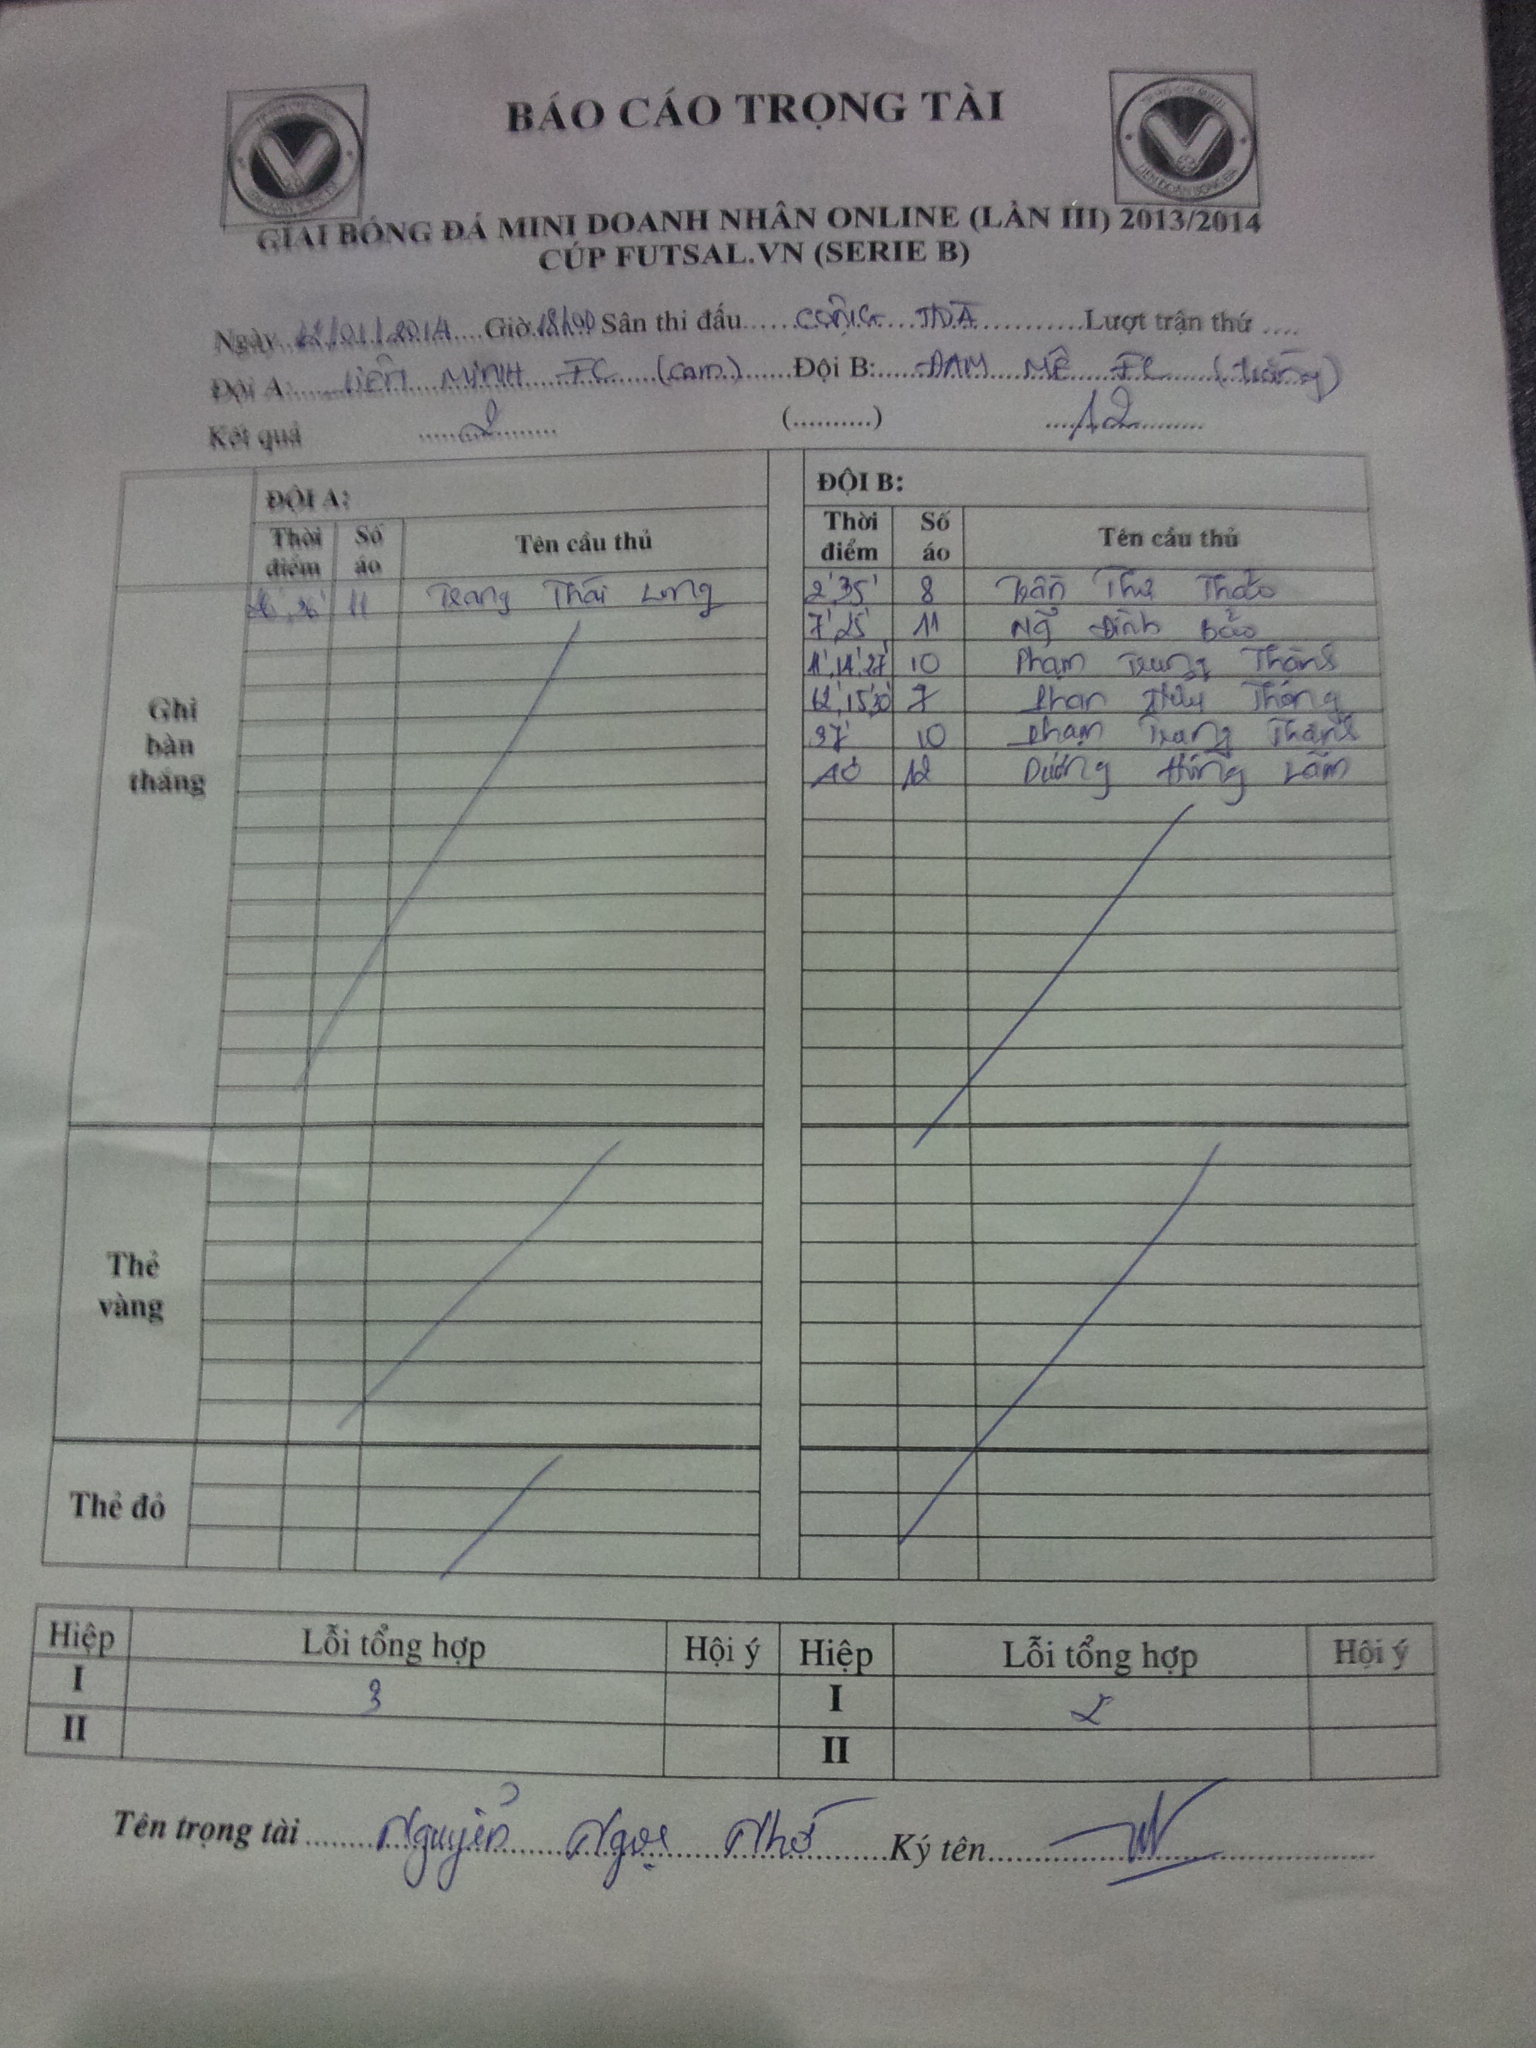 BÁO CÁO TRỌNG TÀI
GIẢI BÓNG ĐÁ MINI DOANH NHÂN ONLINE (LẦN III) 2013/2014
CÚP FUTSAL.VN (SERIE B)
Ngày 12/01/2014 Giờ 18h00 Sân thi đấu CỘNG HÒA Lượt trận thứ ....
Đội A: LIÊN MINH FC (cam) Đội B: ĐAM MÊ FC (trắng)
Kết quả 2 (..........) 12
ĐỘI A: ĐỘI B:
Thời điểm Số áo Tên cầu thủ Thời điểm Số áo Tên cầu thủ
Ghi bàn thắng
11 Trang Thái Long 2' 35' 8 Trần Thư Thảo
7' 25' 11 Ng Đình Bảo
11' 14' 27' 10 Phạm Trung Thành
12' 15' 7 Phan Thông
37' 10 Phạm Trung Thành
40 12 Dương Hùng Lâm
Thẻ vàng
Thẻ đỏ
Hiệp Lỗi tổng hợp Hội ý Hiệp Lỗi tổng hợp Hội ý
I 3 I 2
II II
Tên trọng tài Nguyễn Ngọc Nhớ Ký tên